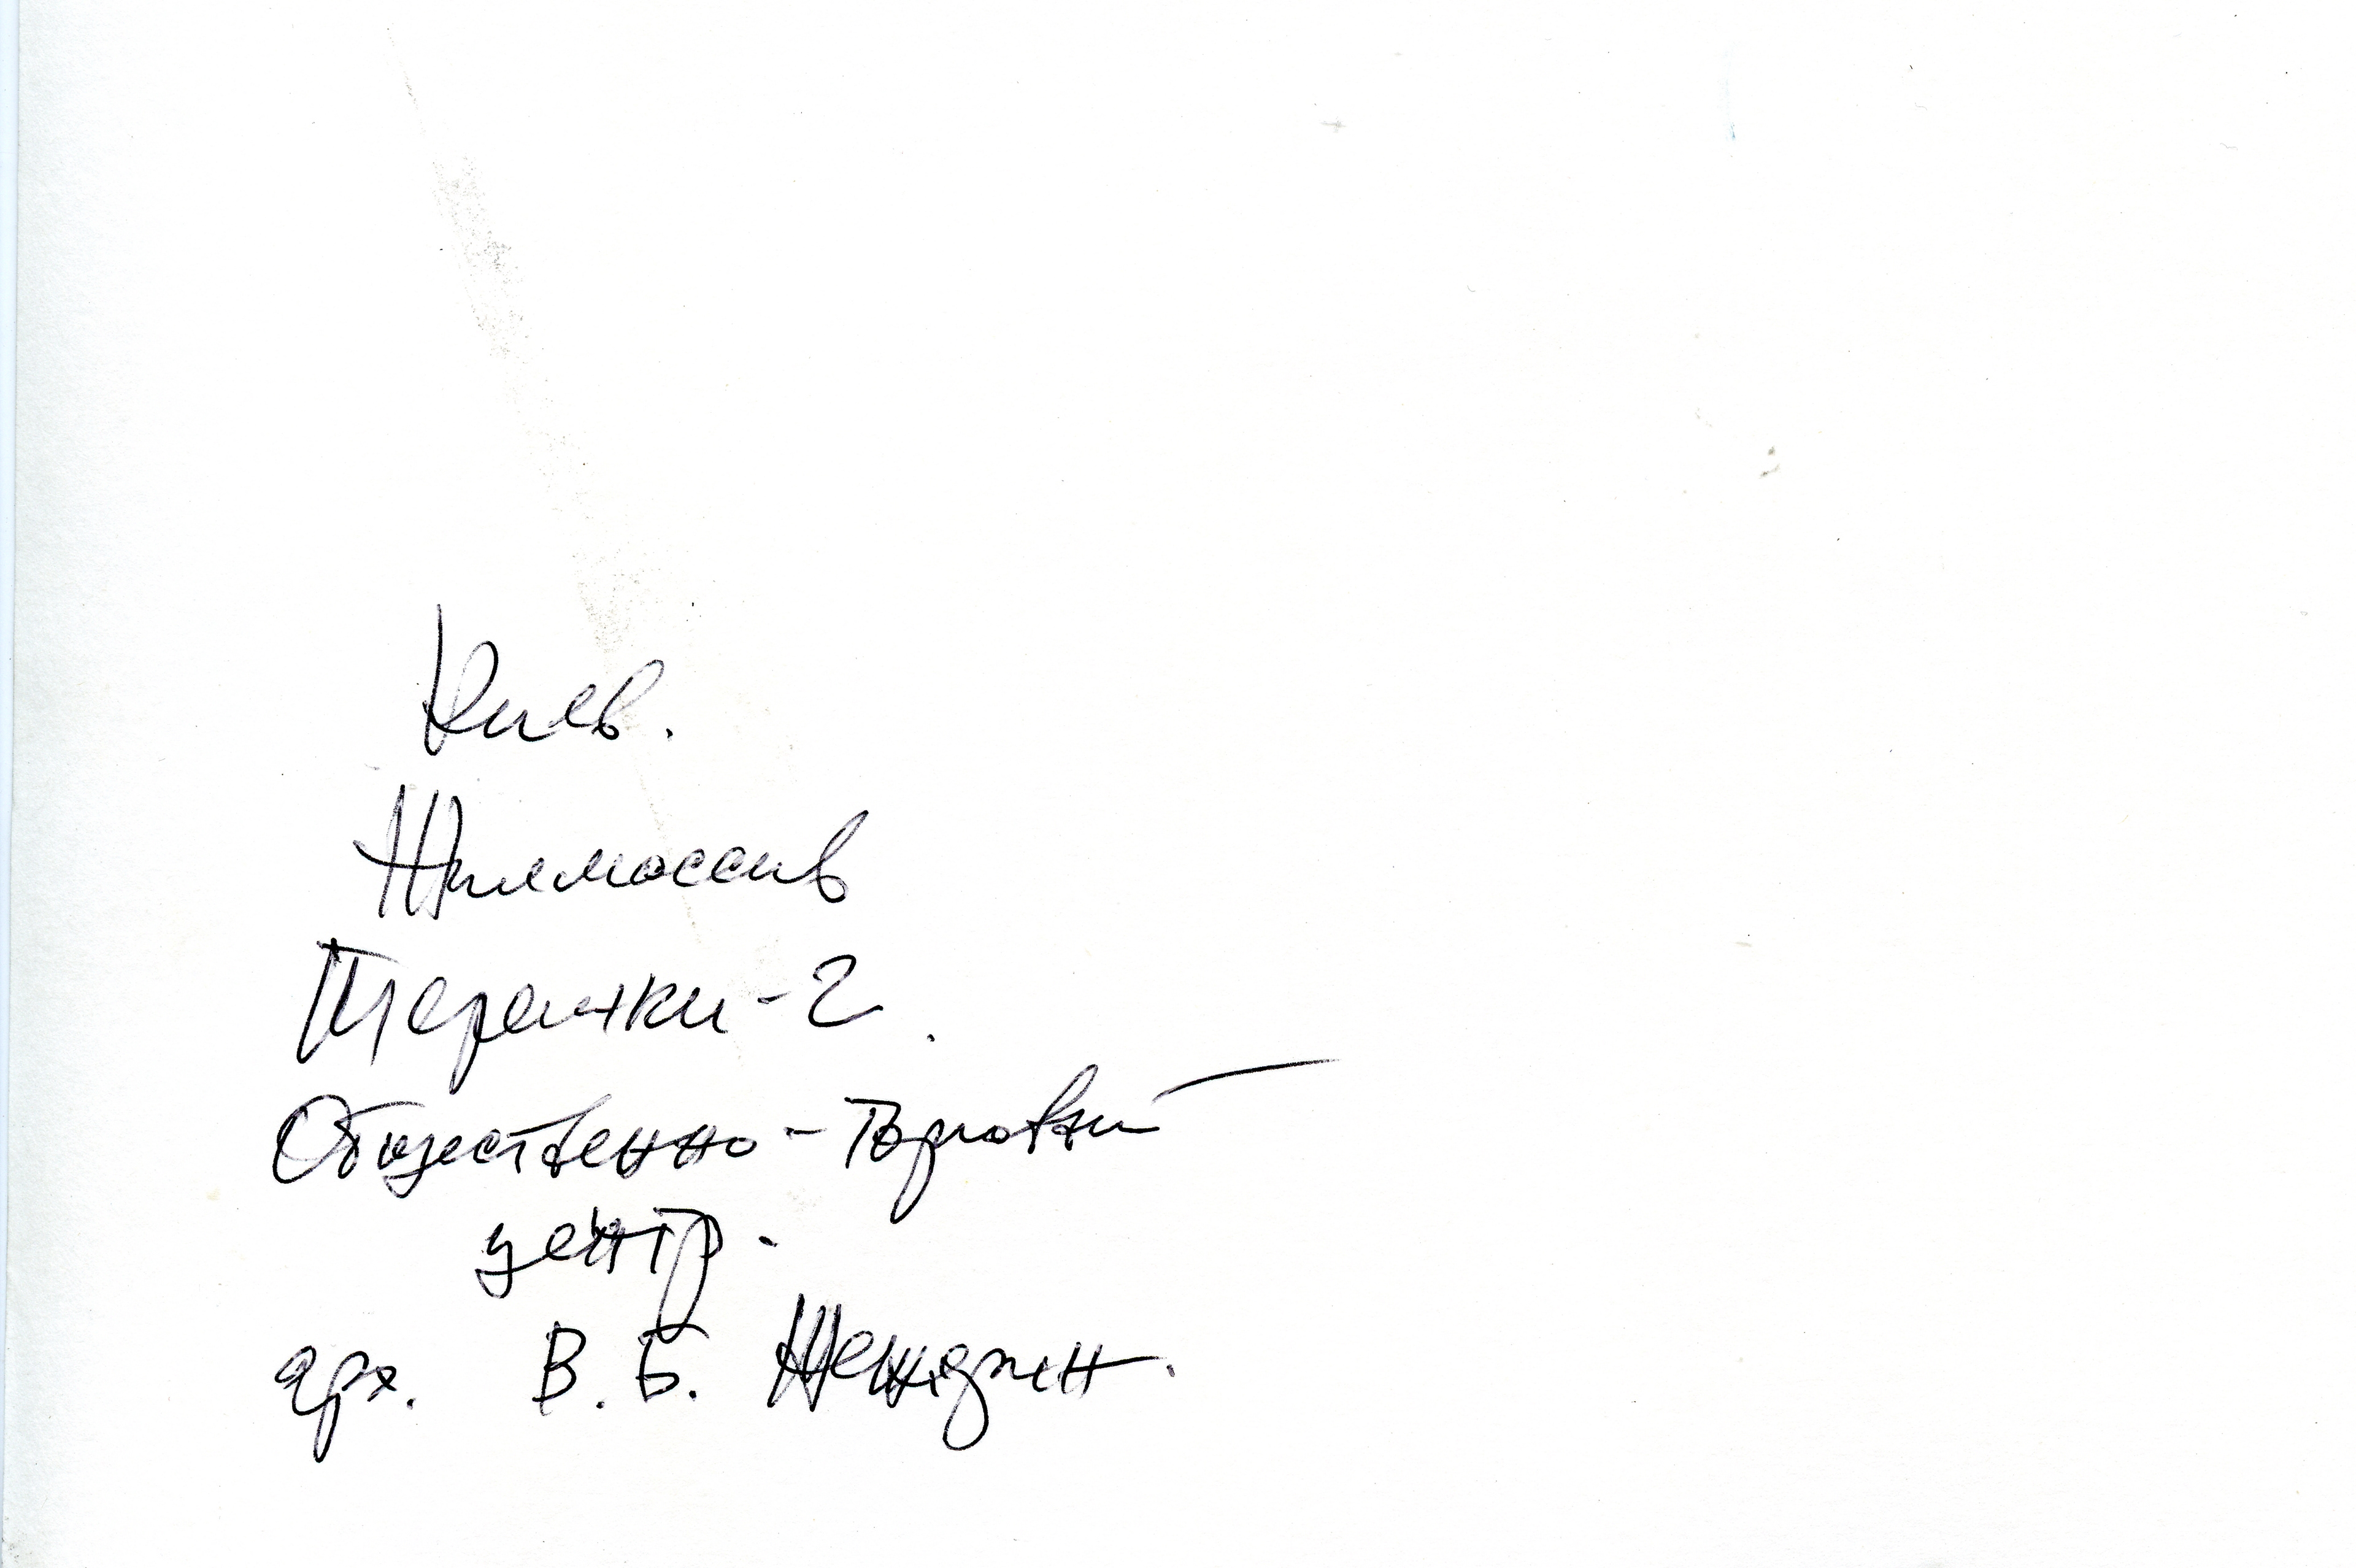 Киев.
Жилмассив
Теремки-2.
Общественно-торговый
центр.
арх. В.Б. Жежерин.